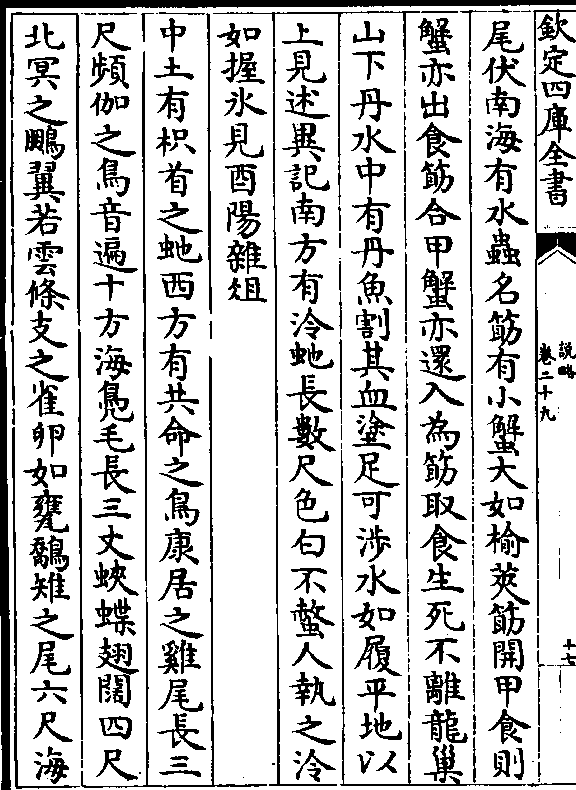 欽定四庫全書
說略
卷二十九
十七
尾伏南海有水蟲名筯有小蟹大如榆莢筯開甲食則
蟹亦出食筯合甲蟹亦還入為筯取食生死不離龍巢
山下丹水中有丹魚割其血塗足可涉水如履平地以
上見述異記南方有冷虵長數尺色白不螫人執之冷
如握氷見酉陽雜俎
中土有枳首之虵西方有共命之鳥康居之雞尾長三
尺頻伽之鳥音遍十方海鳧毛長三丈蛺蝶翅闊四尺
北冥之鵬翼若雲條支之雀卵如甕鷸雉之尾六尺海